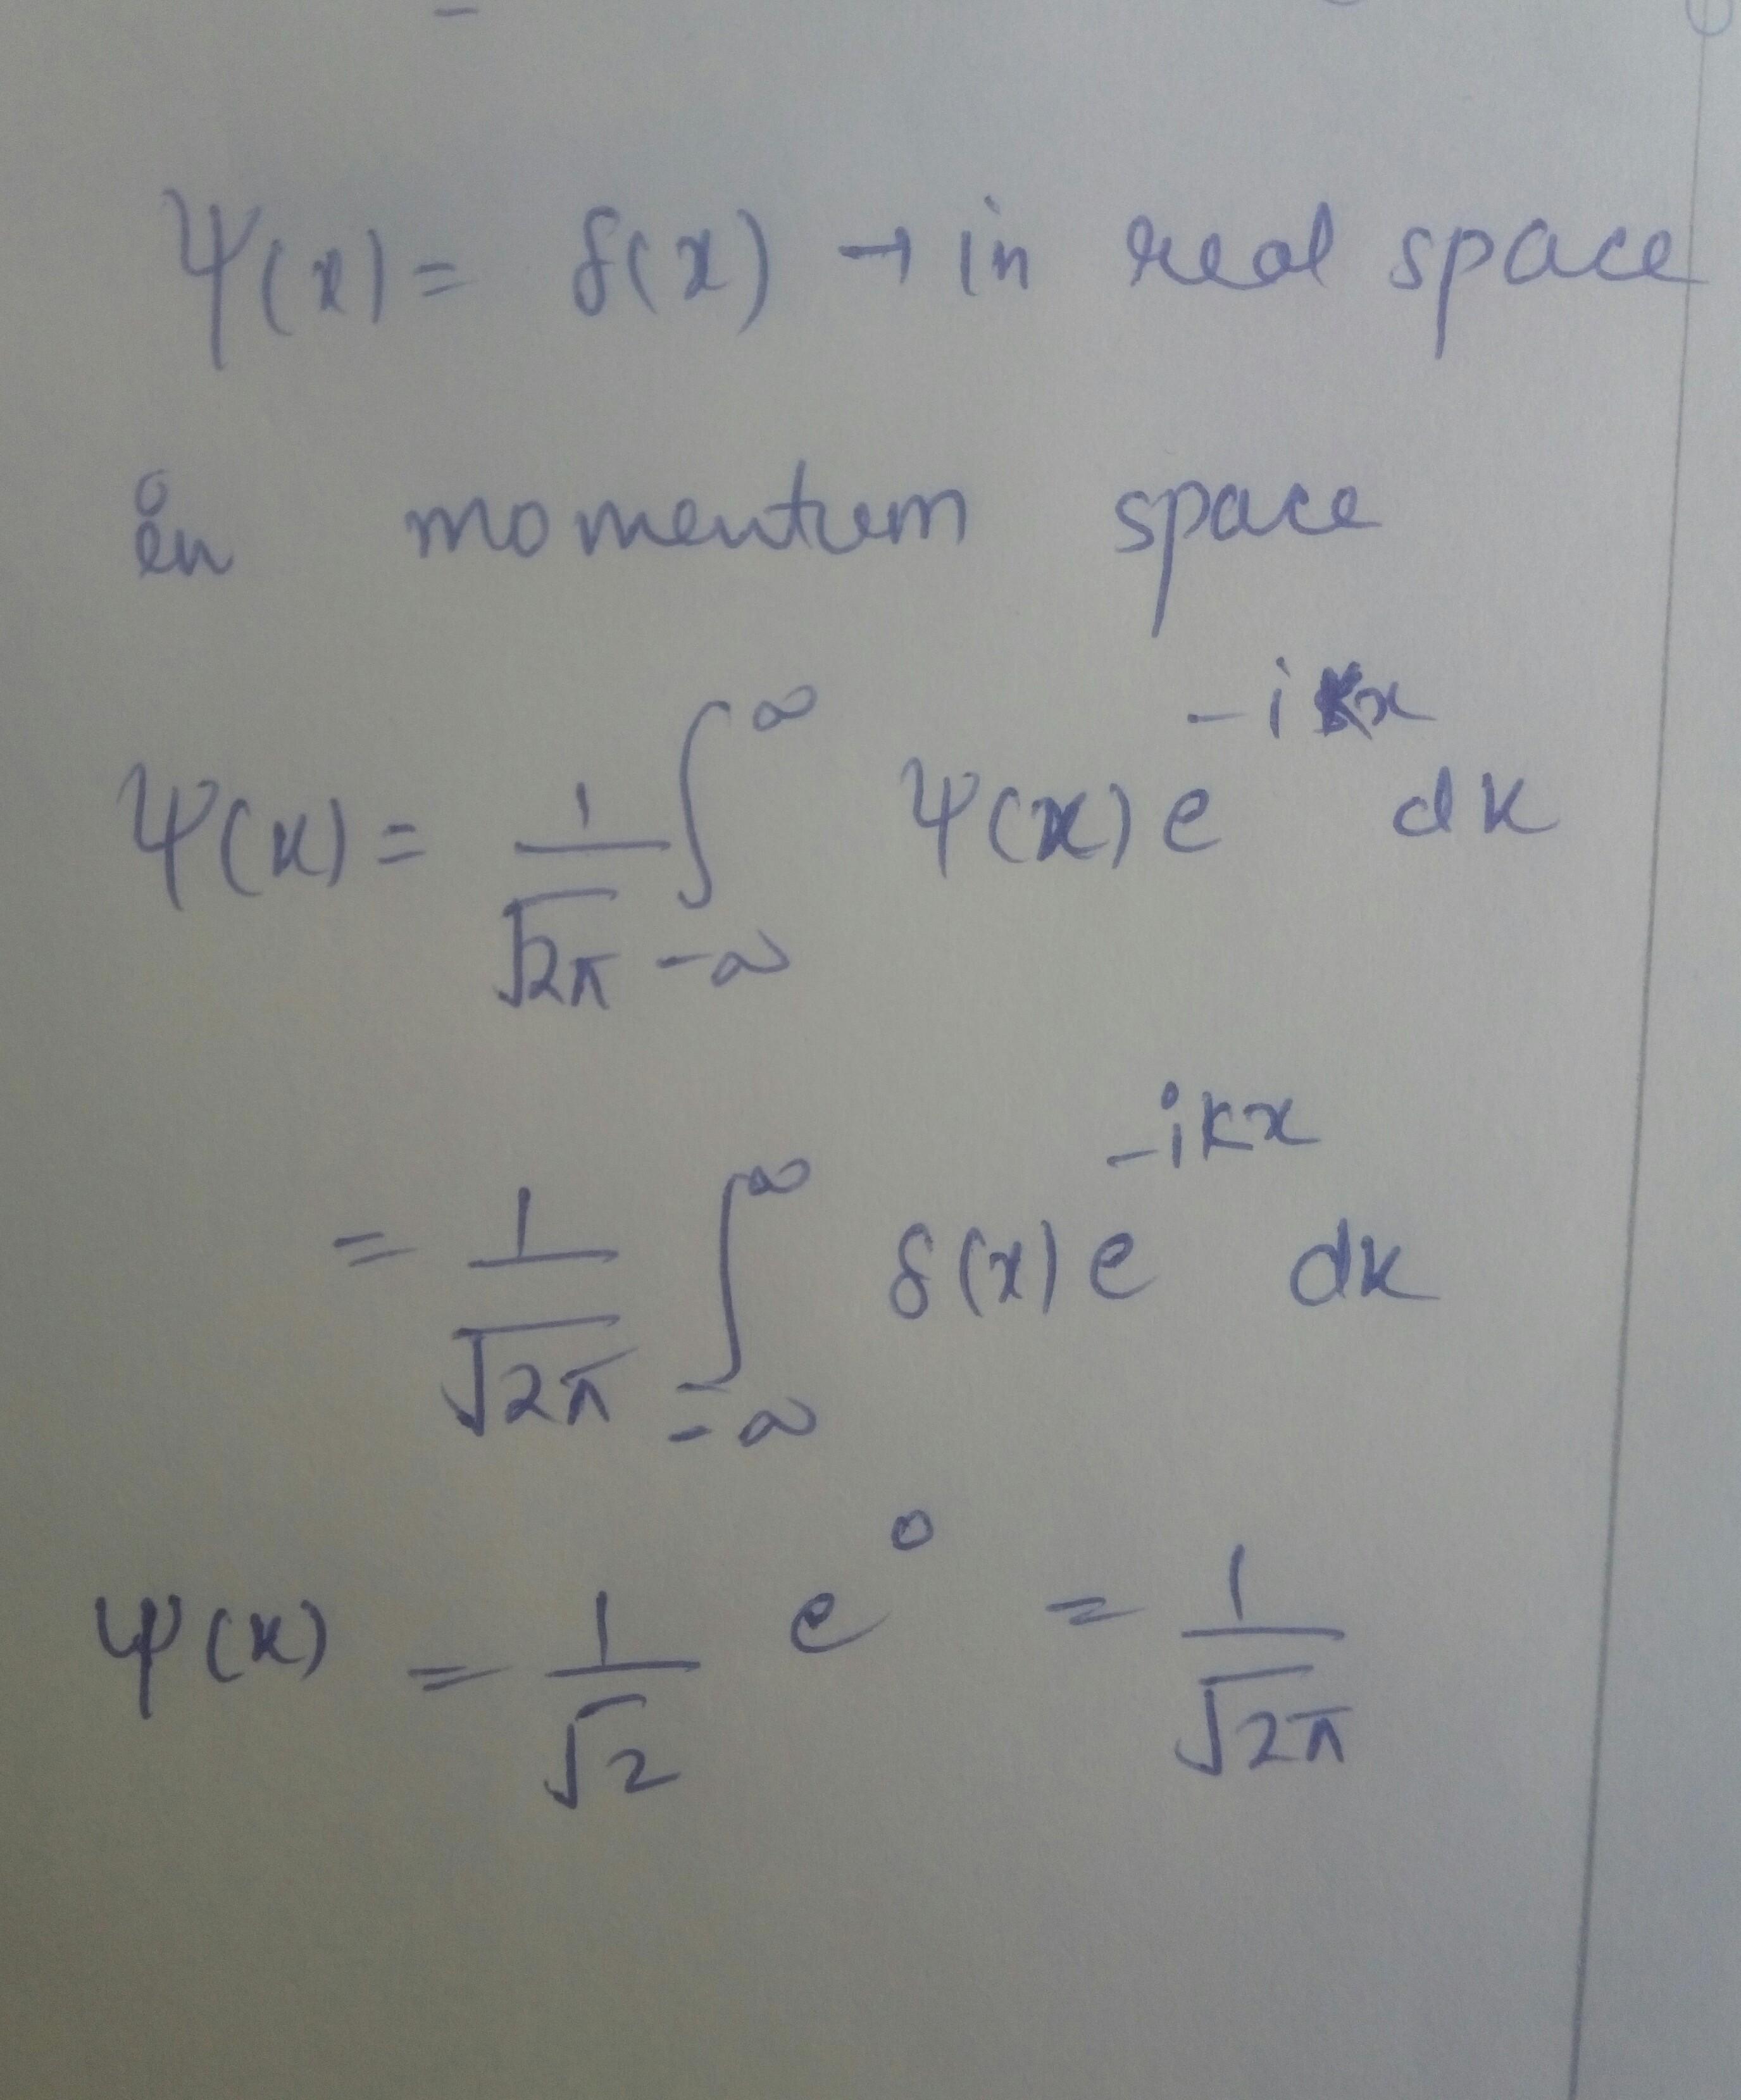 ψ(x) = δ(x) → in real space
in momentum space
ψ(k) = 1/√2π ∫_{-∞}^{∞} ψ(x) e^{-ikx} dk
= 1/√2π ∫_{-∞}^{∞} δ(x) e^{-ikx} dk
ψ(k) = 1/√2 e^0 = 1/√2π